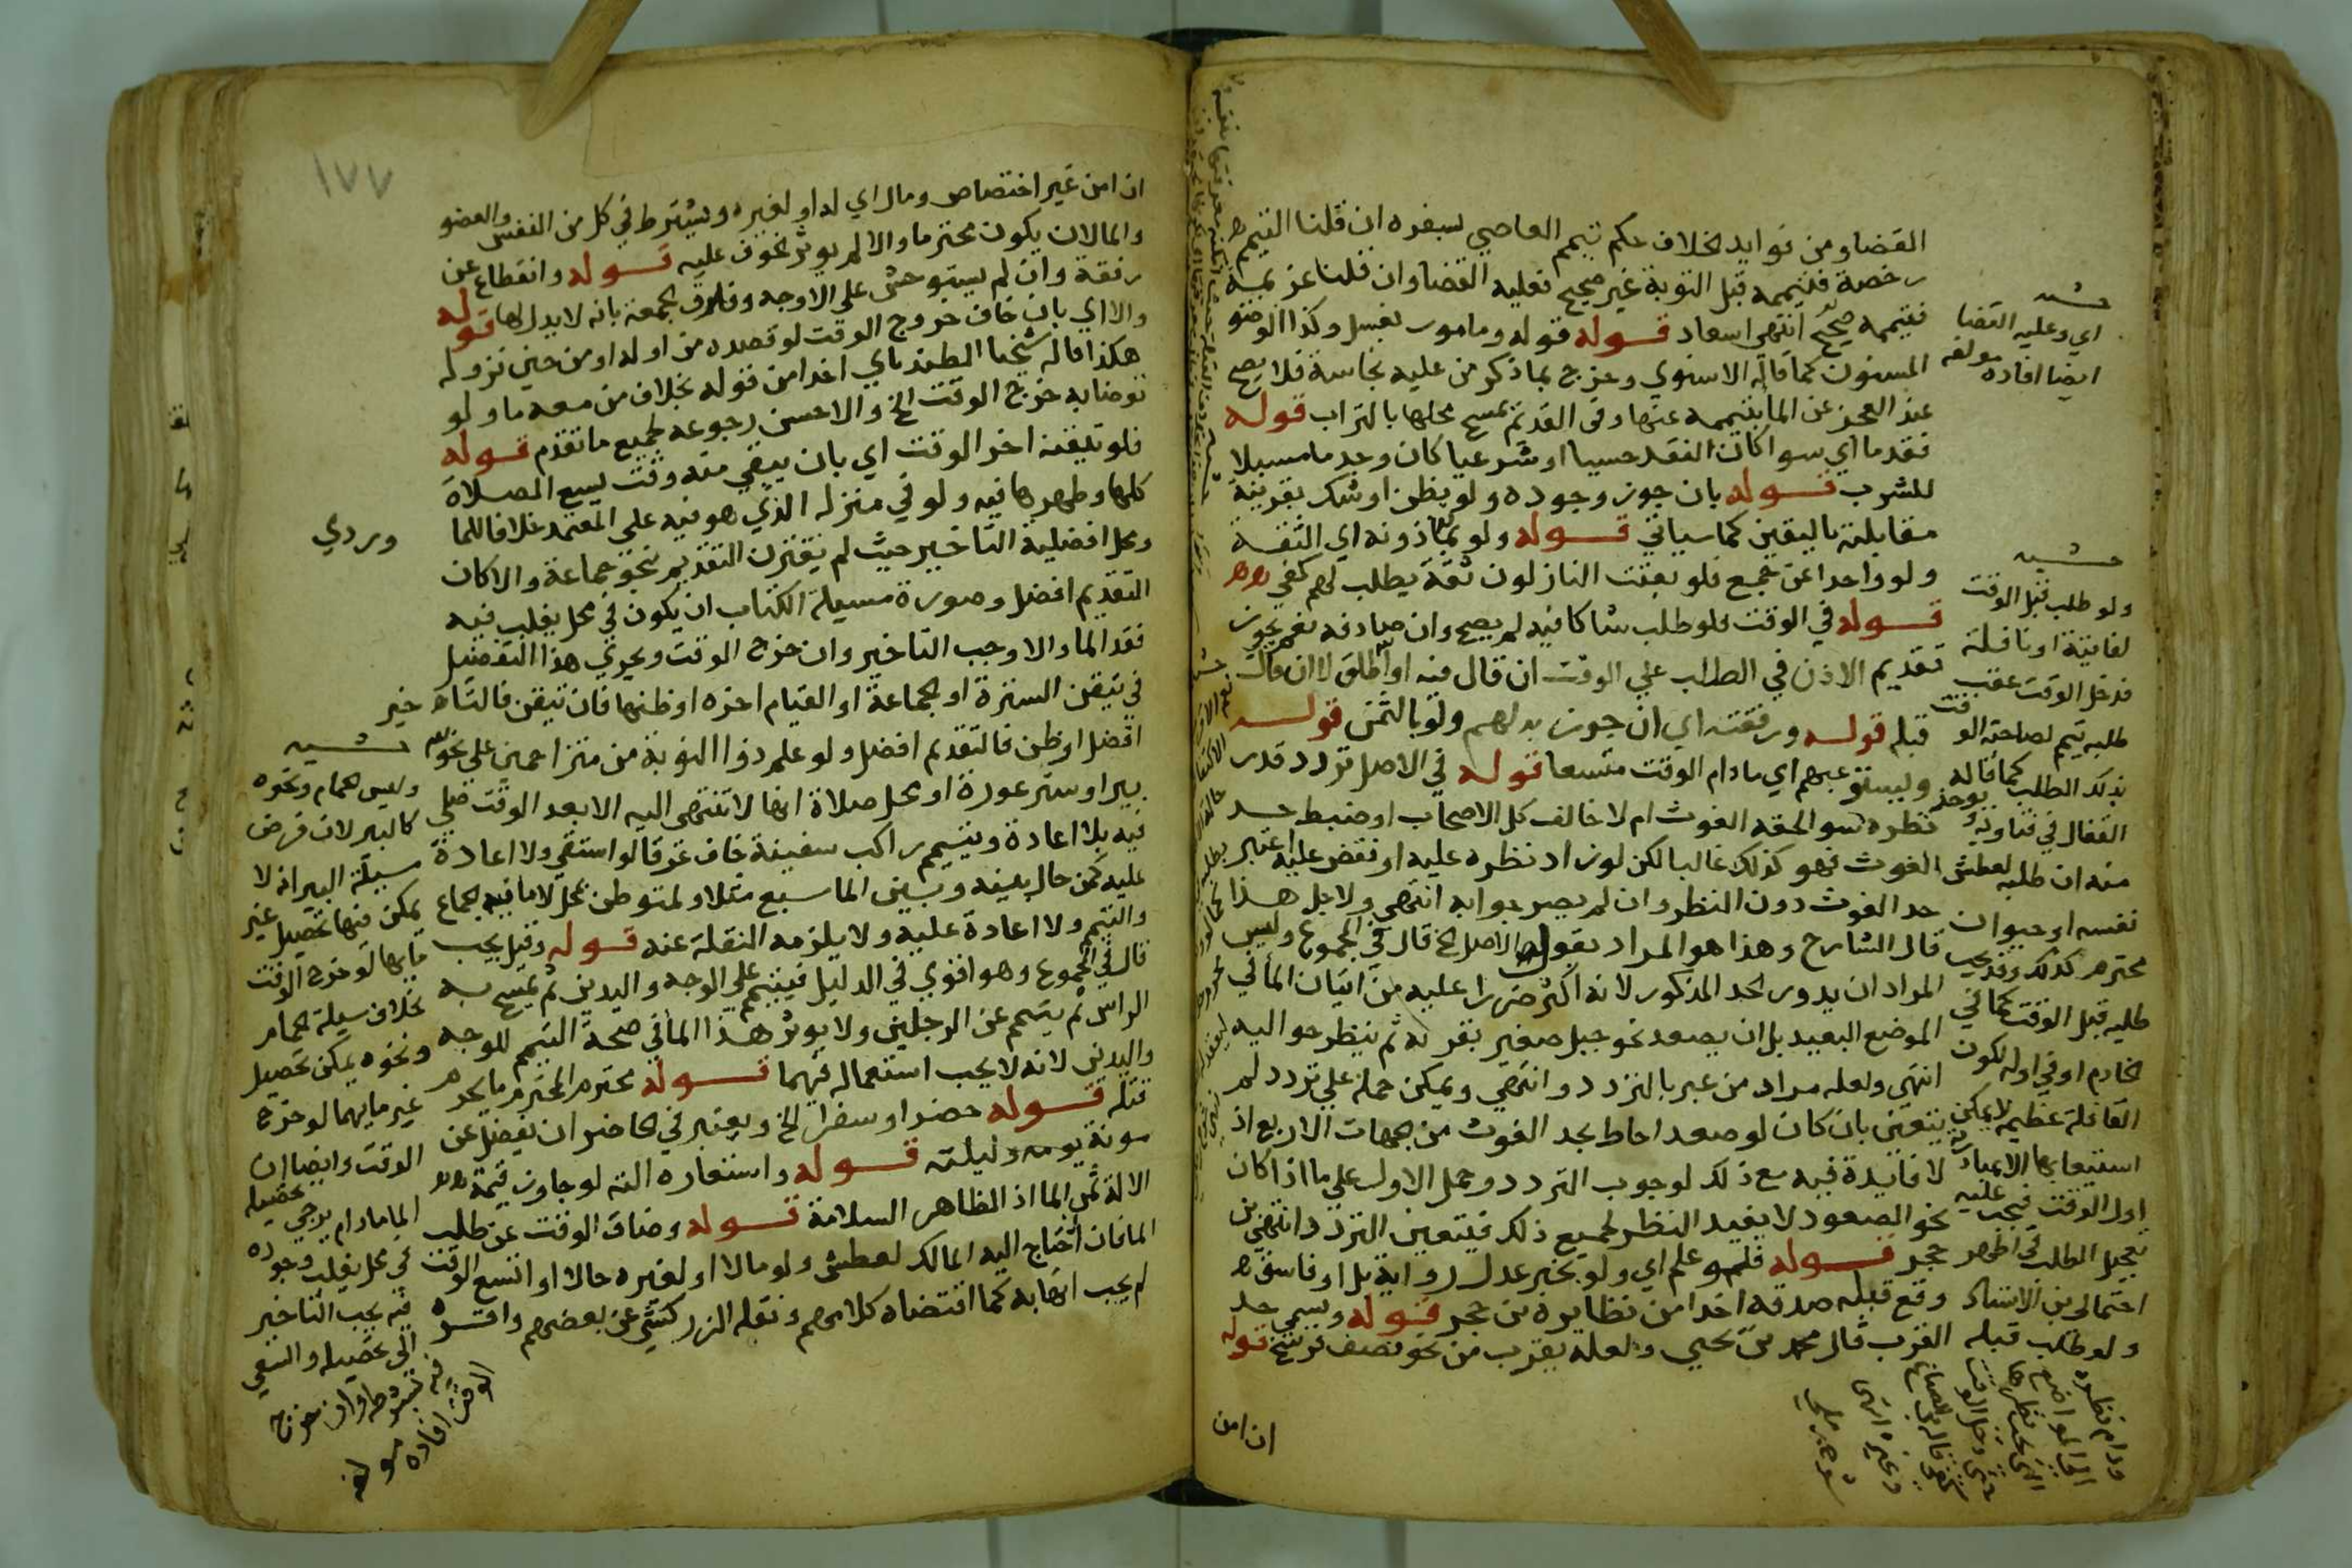 القضا ومن فوايد الخلاف حكم تيمم العاصي بسفره ان قلنا التيمم
رخصة فتيممه قبل التوبة غير صحيح فعليه القضا وان قلنا عزيمة
فتيممه صحيح انتهى اسعاد قوله قوله ومامور بغسل وكذا الوضو
المسنون كما قاله الاسنوي وخرج بما ذكر من عليه نجاسة فلا يصح
عند العجز عن الما بتيممه عنها وفي القديم يمسح محلها بالتراب قوله
فقد ما اي سوا كان الفقد حسيا او شرعيا كان وجد ما مسبلا
للشرب قوله بان جوز وجوده ولو بظن او شك بقرينة
مقابلته باليقين كما سياتي قوله ولو بماذونه اي الثقة
ولو واحدا عن جمع فلو بعثت النازلون ثقة يطلب لهم كفى
قوله في الوقت فلو طلب شاكا فيه لم يصح وان صادفه نعم يجوز
تقديم الاذن في الطلب على الوقت ان قال فيه او اطلق لا ان قال
قبله قوله ورفقته اي ان جوز بذلهم ولو بالثمن قوله
وليستوعبهم اي مادام الوقت متسعا قوله في الاصل تردد قدر
نظره سوا لحقه الغوث ام لا خالف كل الاصحاب او ضبط حد
الغوث فهو كذلك غالبا لكن لو زاد نظره عليه او نقص عليه اعتبر
حد الغوث دون النظر وان لم يصر جوابه انتهى ولاجل هذا
قال الشارح وهذا هو المراد بقول الاصل الخ قال في المجموع وليس
المراد ان يدور الحد المذكور لانه اكثر ضررا عليه من اتيان الما في
الموضع البعيد بل ان يصعد نحو جبل صغير بقربه ثم ينظر حواليه
انتهى ولعله مراد من عبر بالتردد وانتهى ويمكن حمله على تردد لم
يتعين بان كان لو صعد احاط بحد الغوث من الجهات الاربع اذ
لا فايدة فيه مع ذلك لوجوب التردد وحمل الاول على ما اذا كان
نحو الصعود لا يفيد النظر لجميع ذلك فيتعين التردد انتهى بن
حجر قوله فلو علم اي ولو بخبر عدل رواية بل او فاسق
وقع قبله صدقه اخذا من نظايره بن حجر قوله ويسمى حد
القرب قال محمد بن يحيى ولعله يقرب من نحو نصف فرسخ قوله
ان امن
حشيه
اي وعليه القضا
ايضا افاده مولفه
حشيه
ولو طلب قبل الوقت
لفايتة او نافلة
فدخل الوقت عقب
طلبه تيمم لصاحبة الوقت
بذلك الطلب كما قاله
القفال في فتاويه ويوخذ
منه ان طلبه لعطش
نفسه او حيوان
محترم كذلك وقد يجب
طلبه قبل الوقت كما في
الخادم او في اوله لكون
القافلة عظيمة لا يمكن
استيعابها الا بمبادرته
اول الوقت فيجب عليه
تعجيل الطلب في اظهر
احتمالي بن الاستاذ
ولو طلب قبله
ودام نظره
١٧٧
ان امن غير اختصاص ومال اي له او لغيره ويشترط في كل من النفس والعضو
والمال ان يكون محترما والا لم يوثر الخوف عليه قوله وانقطاع عن
رفقة وان لم يستوحش على الاوجه وفارق الجمعة بانه لا بدل لها قوله
والا اي بان خاف خروج الوقت لو قصده من اوله او من حين نزوله
هكذا قاله شيخنا الطنبداي اخذا من قوله بخلاف من معه ما ولو
توضا به خرج الوقت الخ والاحسن رجوعه لجميع ما تقدم قوله
فلو تيقنه اخر الوقت اي بان يبقي منه وقت يسع الصلاة
كلها وطهرها فيه ولو في منزله الذي هو فيه على المعتمد خلافا للما
وردي
ومحل افضلية التاخير حيث لم يقترن التقديم بنحو جماعة والا كان
التقديم افضل وصورة مسيلة الكتاب ان يكون في محل يغلب فيه
فقد الما والا وجب التاخير وان خرج الوقت ويجري هذا التفصيل
في تيقن السترة او الجماعة او القيام اخره او ظنها فان تيقن فالتاخير
افضل او ظن فالتقديم افضل ولو علم ذوا النوبة من متزاحمين على نحو
بير او ستر عورة او محل صلاة انها لا تنتهى اليه الا بعد الوقت صلى
فيه بلا اعادة وتيمم راكب سفينة خاف غرقا لو استقي ولا اعادة
عليه كمن حال بينه وبين الما سبع مثلا ولمتوطن بمحل لا ما فيه الجماع
والتيمم ولا اعادة عليه ولا يلزمه النقلة عنه قوله وقيل يجب
قال في المجموع وهو اقوي في الدليل فيتيمم على الوجه واليدين ثم يمسح به
الراس ثم يتيمم عن الرجلين ولا يوثر هذا الما في صحة التيمم للوجه
واليدين لانه لا يجب استعماله فيهما قوله محترم المحترم ما يحرم
قتله قوله حضرا وسفرا الخ ويعتبر في الحاضر ان يفضل عن
مونة يومه وليلته قوله واستعارة الته لو جاوز قيمة
الالة ثمن الما اذ الظاهر السلامة قوله وضاق الوقت عن طلب
الما فان احتاج اليه المالك لعطش ولو مالا او لغيره حالا او اتسع الوقت
لم يجب اتهابه كما اقتضاه كلامهم ونقله الزركشي عن بعضهم واقره
حشيه
وليس الحمام ونحوه
كالبير لان فرض
مسيلة البير انه لا
يمكن فيها تحصيل غير
مايها لو خرج الوقت
بخلاف مسيلة الحمام
ونحوه يمكن تحصيل
غير مايهما لو خرج
الوقت وايضا ان
الما مادام يرجي تحصيله
في محل يغلب وجوده
فيه يجب التاخير
الى تحصيله والسعي
فيه بشرطه وان خرج
الوقت افاده مولفه